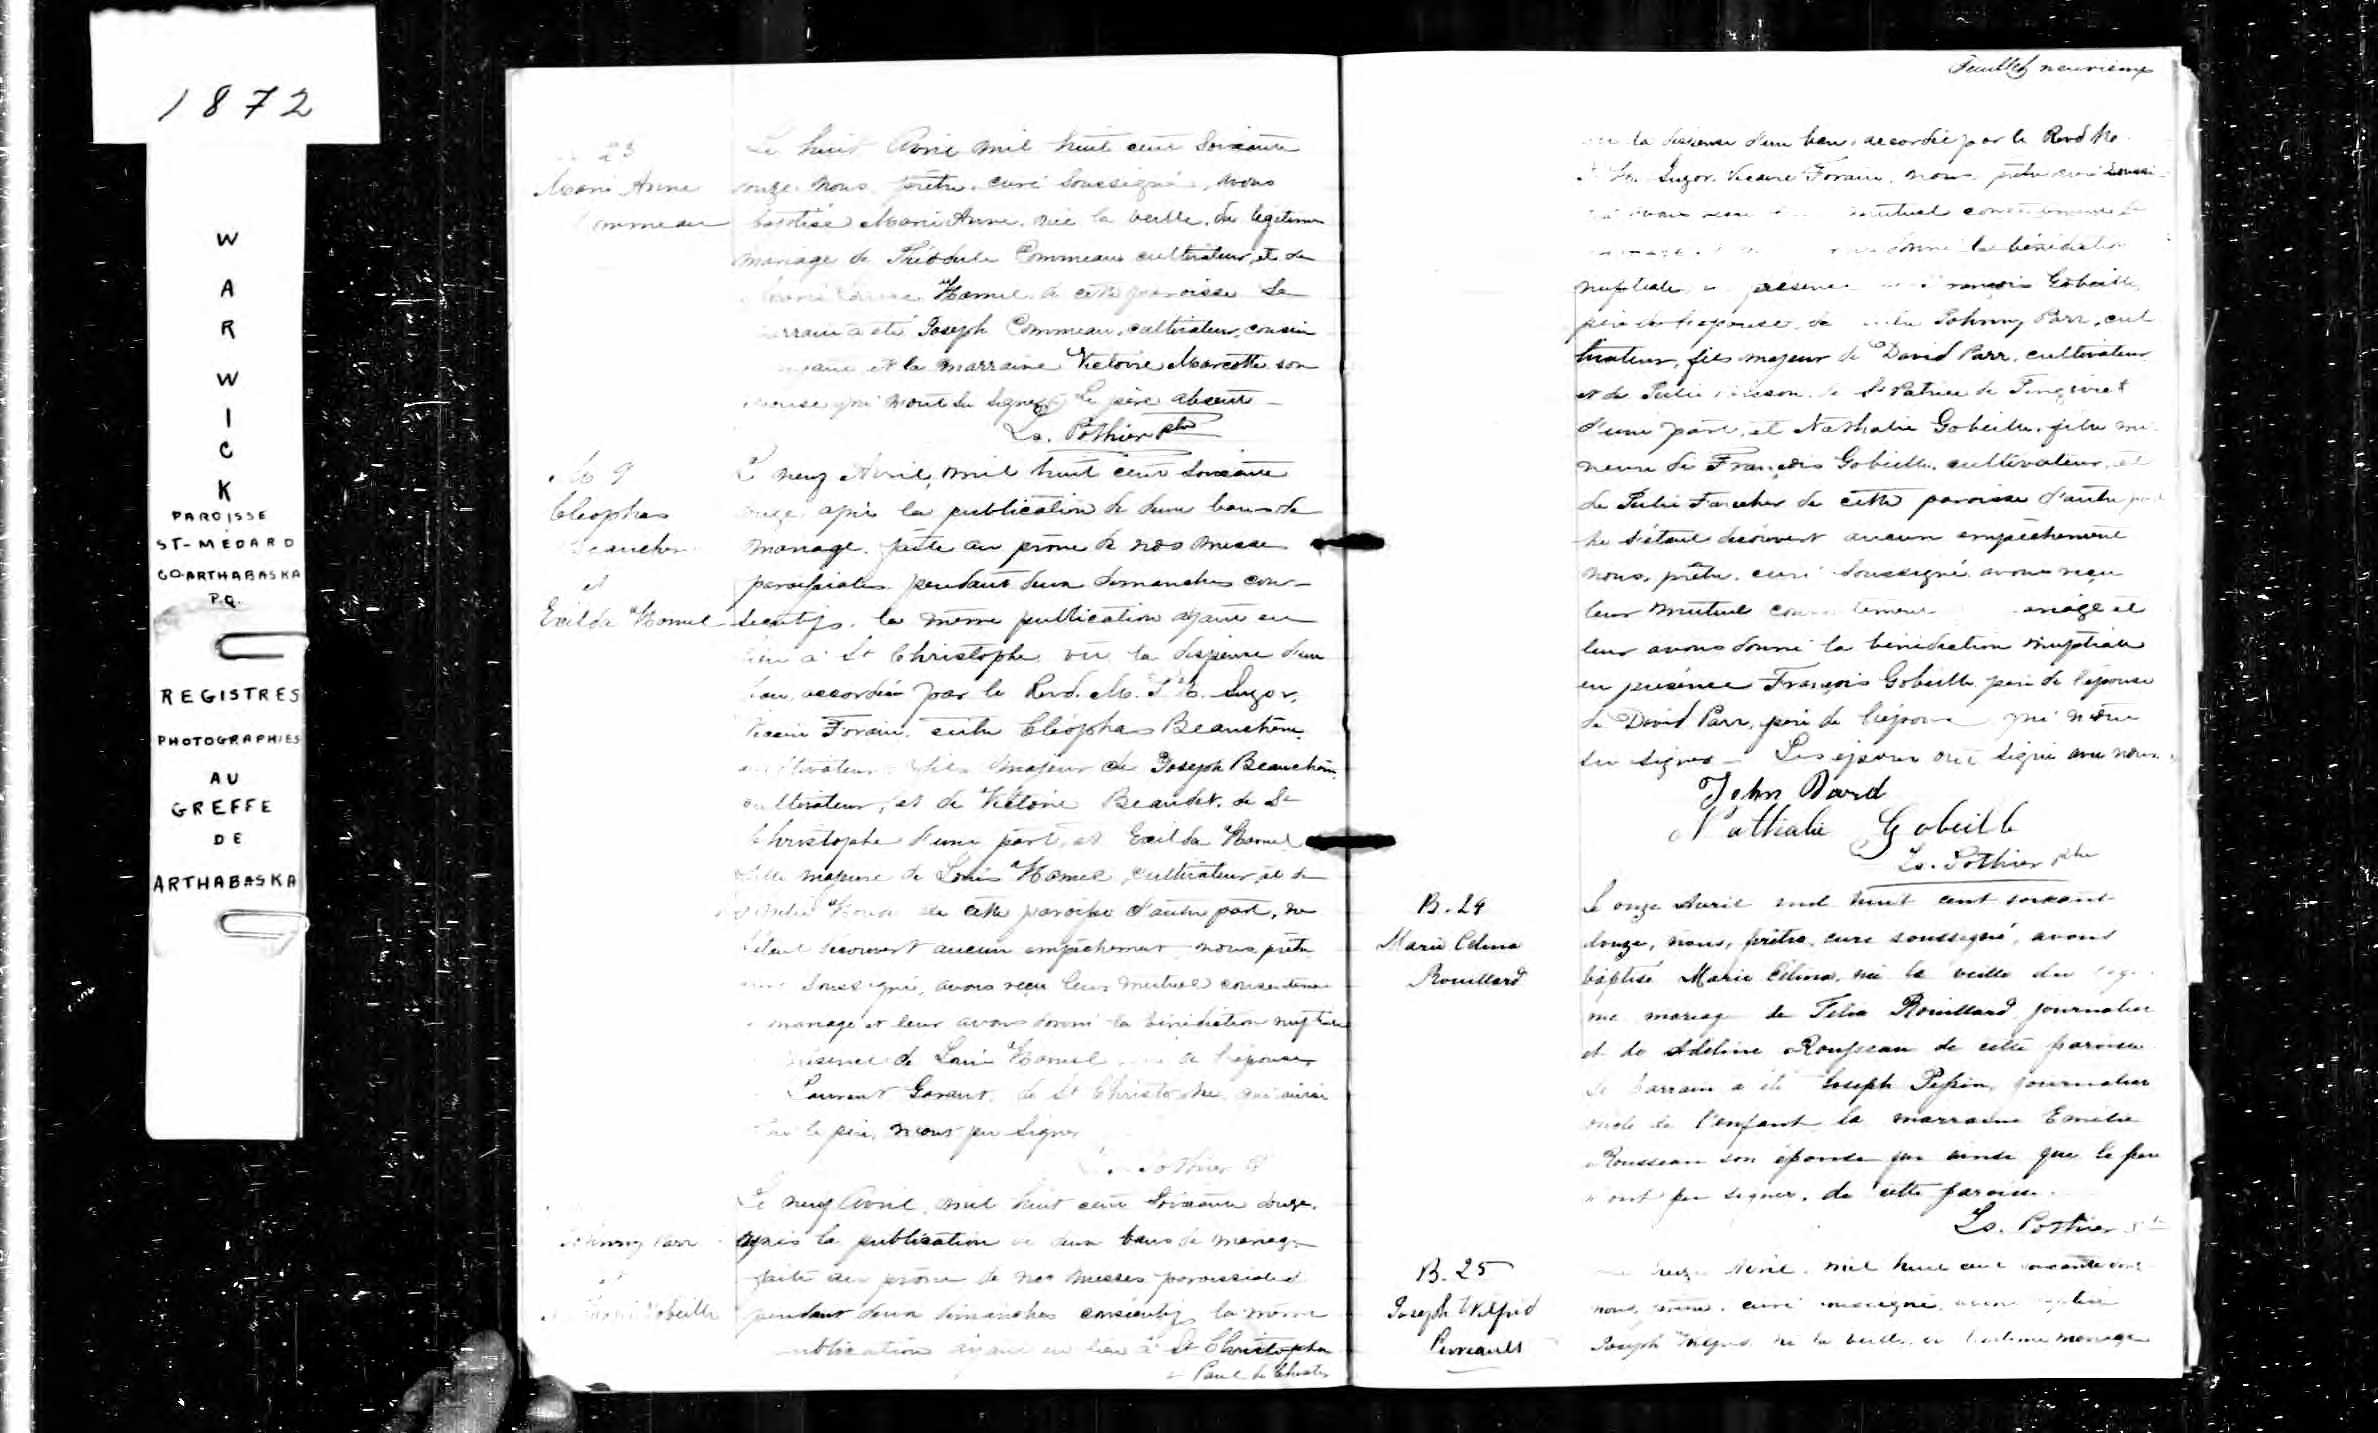 1872
W
A
R
W
I
C
K
PAROISSE
ST-MÉDARD
CO-ARTHABASKA
P.Q.
REGISTRES
PHOTOGRAPHIES
AU
GREFFE
DE
ARTHABASKA
23
Marie Anne
Commeau
Le huit Avril mil huit cent soixante
douze, nous, prêtre, curé soussigné, avons
baptisé Marie Anne, née la veille, du légitime
mariage de Théodule Commeau cultivateur, et de
Hamel de cette paroisse Le
parrain a été Joseph Commeau, cultivateur, cousin
et la marraine Victoire Marcotte son
épouse qui n'ont su signer. Le père absent
Ls. Pothier ptre
M 9
Cléophas
Beauchene
et
Exilda Hamel
Le neuf Avril, mil huit cent soixante
douze après la publication de deux bans de
mariage, faite au prône de nos messes
paroissiales pendant deux dimanches con-
secutifs, la même publication ayant eu
lieu à St Christophe vu la dispense d'un
ban, accordée par le Revd. M. Suzor,
Vicaire Forain, entre Cléophas Beauchene,
cultivateur fils majeur de Joseph Beauchene,
cultivateur, et de Victoire Beaudet, de St
Christophe d'une part, et Exilda Hamel
fille majeure de Louis Hamel, cultivateur, et de
de cette paroisse d'autre part, ne
s'étant découvert aucun empêchement nous, prêtre
curé soussigné, avons reçu leur mutuel consentement
mariage et leur avons donné la bénédiction nuptiale
présence de Louis Hamel de l'épouse,
Laurent Garant, de St Christophe, qui ainsi
que le père, n'ont pu signer
Pothier
Johnny Parr
et
Gobeille
Le neuf Avril, mil huit cent soixante douze,
après la publication de deux bans de mariage
faite au prône de nos messes paroissiales
pendant deux dimanches consécutifs, la même
publication ayant eu lieu à St Christophe
Paul de Chester
Feuillet neuvième
vu la dispense d'un ban, accordée par le Revd Mr
Suzor, Vicaire Forain, nous, prêtre curé soussi-
mutuel consentement
donné la bénédiction
nuptiale en présence François Gobeille,
père de l'épouse, de entre Johnny Parr, cul
tivateur, fils majeur de David Parr, cultivateur
et de Julie de St Patrice de Tingwick
d'une part, et Nathalie Gobeille, fille mi-
neure de François Gobeille, cultivateur, et
de Julie Faucher de cette paroisse d'autre part
ne s'étant découvert aucun empêchement
nous, prêtre, curé soussigné avons reçu
leur mutuel consentement mariage et
leur avons donné la bénédiction nuptiale
en présence François Gobeille père de l'épouse
de David Parr, père de l'époux qui n'ont
su signer Les époux ont signé avec nous.
John David
Nathalie Gobeille
Ls. Pothier ptre
B. 24
Marie Célina
Rouillard
Le onze Avril mil huit cent soixante
douze, nous, prêtre, curé soussigné, avons
baptisé Marie Célina, née la veille du légiti
me mariage de Félix Rouillard, journalier
et de Adeline Rousseau de cette paroisse
Le parrain a été Joseph Pepin, journalier
oncle de l'enfant la marraine Emélie
Rousseau son épouse qui ainsi que le père
n'ont pu signer, de cette paroisse.
Ls. Pothier ptre
B. 25
Joseph Wilfrid
Perreault
Avril, mil huit cent soixante douze
nous, prêtre, curé soussigné, avons baptisé
Joseph Wilfrid, né la veille, du légitime mariage